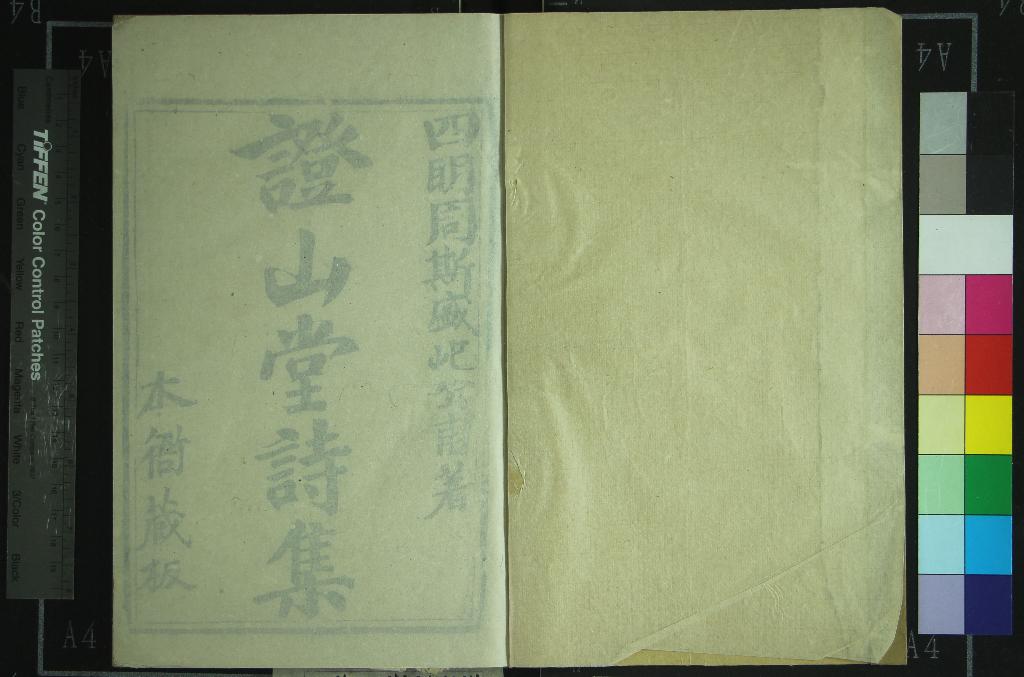 四明周斯盛屺公甫著
證山堂詩集
本衙蔵板
TIFFEN Color Control Patches
Centimetres
Blue Cyan Green Yellow Red Magenta White 3/Color Black
A4
A4
A4
A4
B4